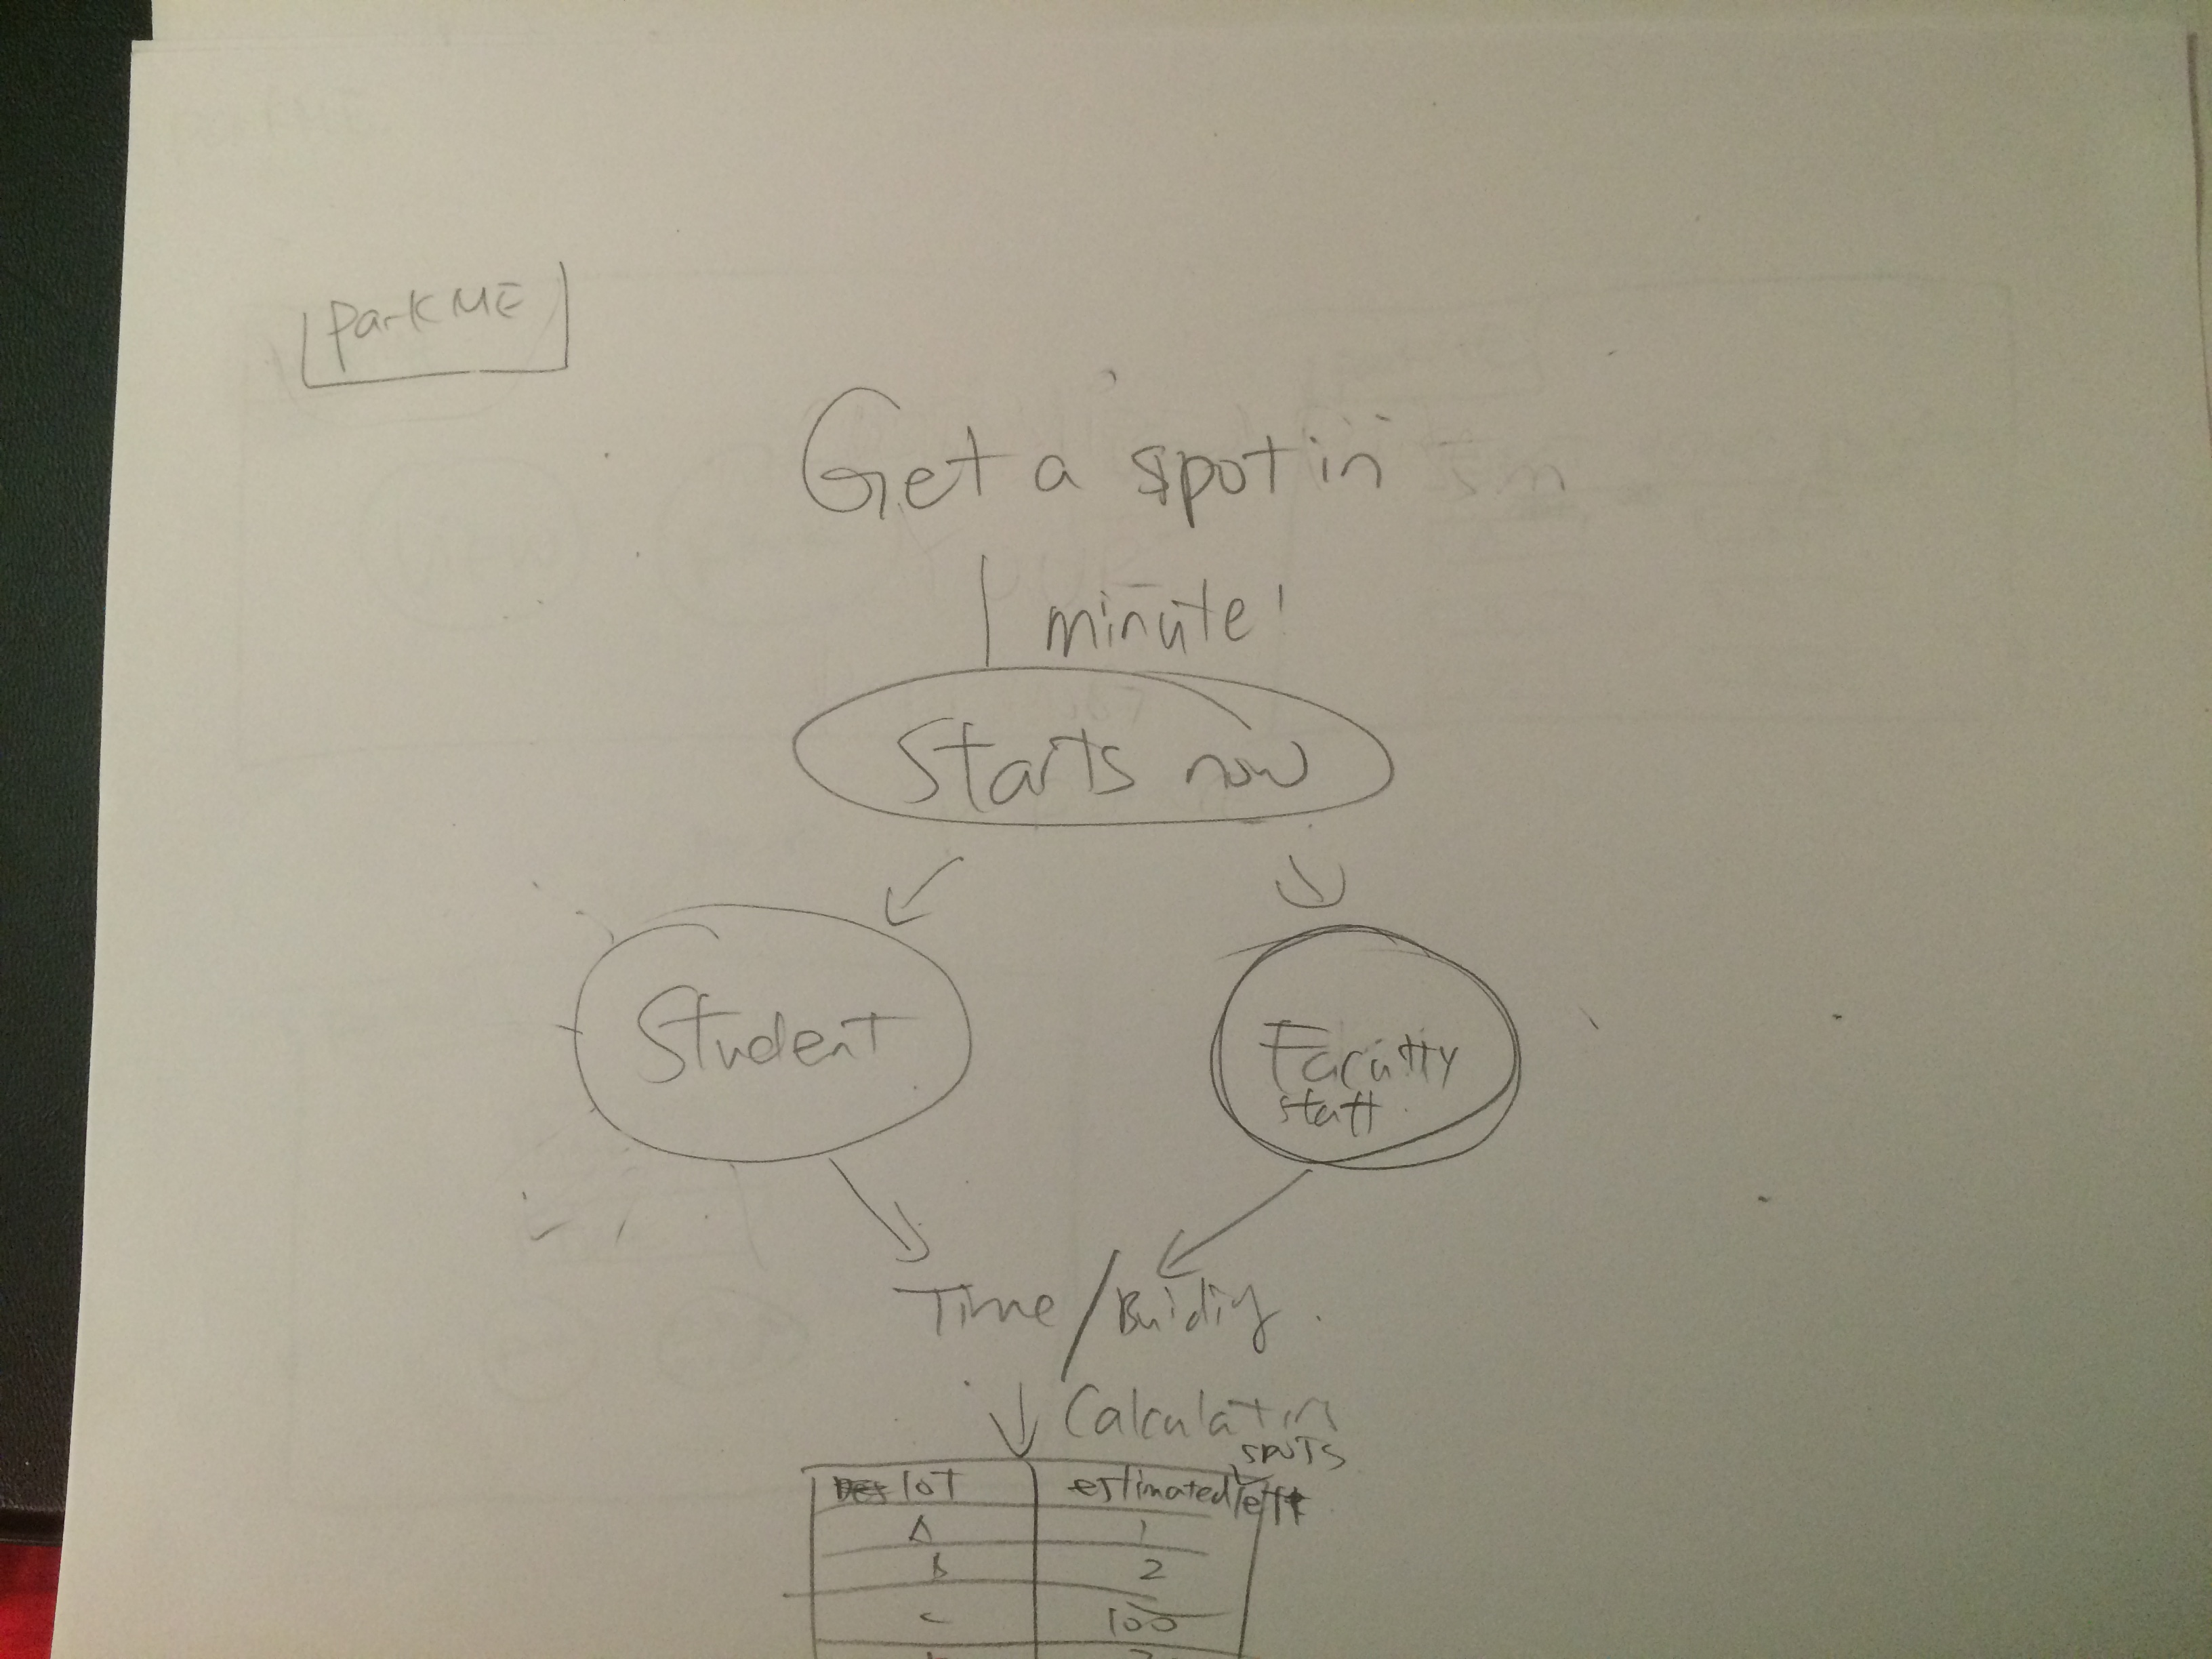 ParkME
Get a spot in
1 minute!
Starts now
Student
Faculty
staff
Time/Building
Calculation
lot
estimated spots left
A 1
B 2
C 100